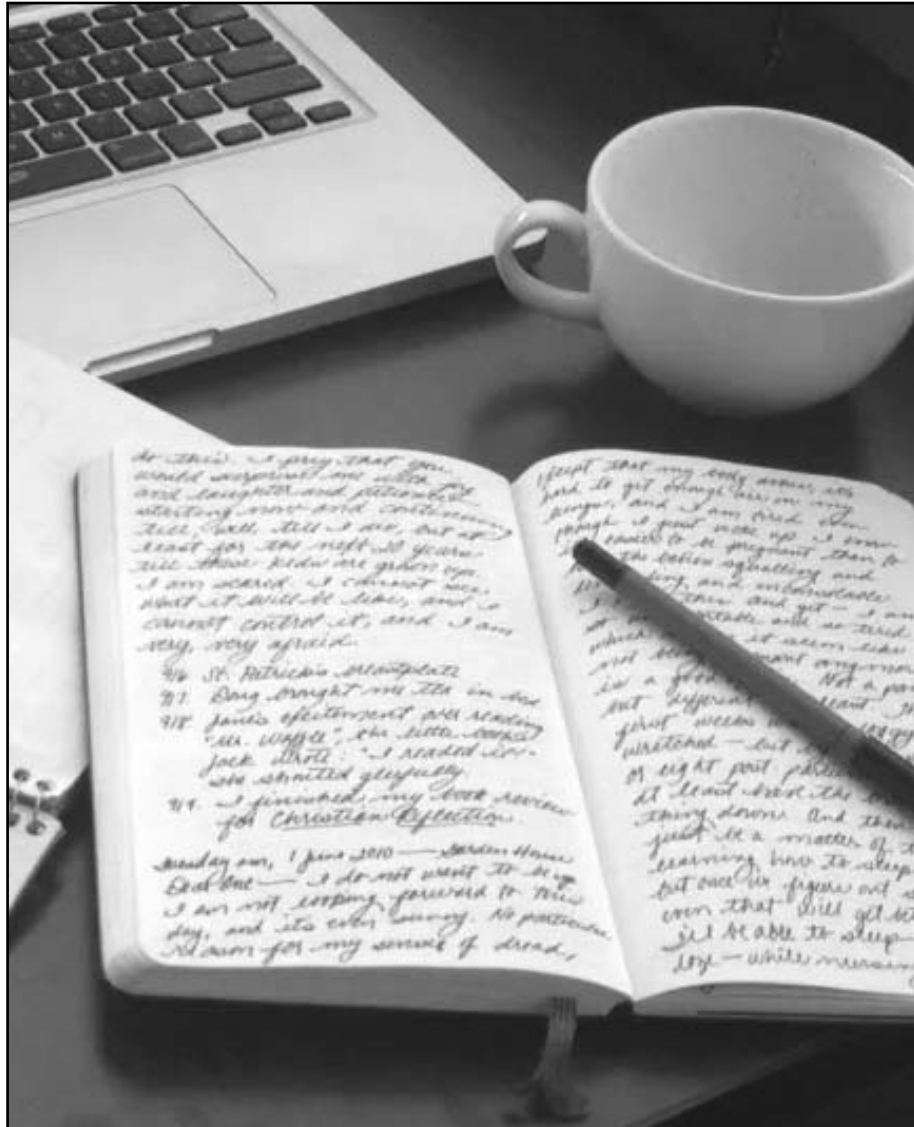 do this. I pray that you
would surprise me with joy
and laughter and patience
starting now and continuing
till, well, till I die, but at
least for the next 20 years
till these kids are grown up.
I am scared. I cannot see
what it will be like, and I
cannot control it, and I am
very, very afraid.
St. Patrick's breastplate
Doug brought me tea in bed
Jane's excitement over reading
"Mr. Waffle", the little book
Jack wrote: "I readed it"
she shouted gleefully.
I finished my book review
for Christian Reflection
Tuesday am, 1 June 2010 — Garden House
Dear One — I do not want to be up.
I am not looking forward to this
day, and it's even sunny. No particular
reason for my sense of dread,
except that my body aches, it's
hard to get enough air in my
lungs, and I am tired even
though I just woke up. I know
easier to be pregnant than to
the babies squalling and
and inconsolable
this and yet — I am
and so tired
it seem like
not be anymore
is a good Not a
but different least
first weeks
wretched — but
of eight post
at least have the
thing down. And then
just be a matter of
learning how to sleep
but once we figure out
even that will get
I'll be able to sleep
doze — while nursing